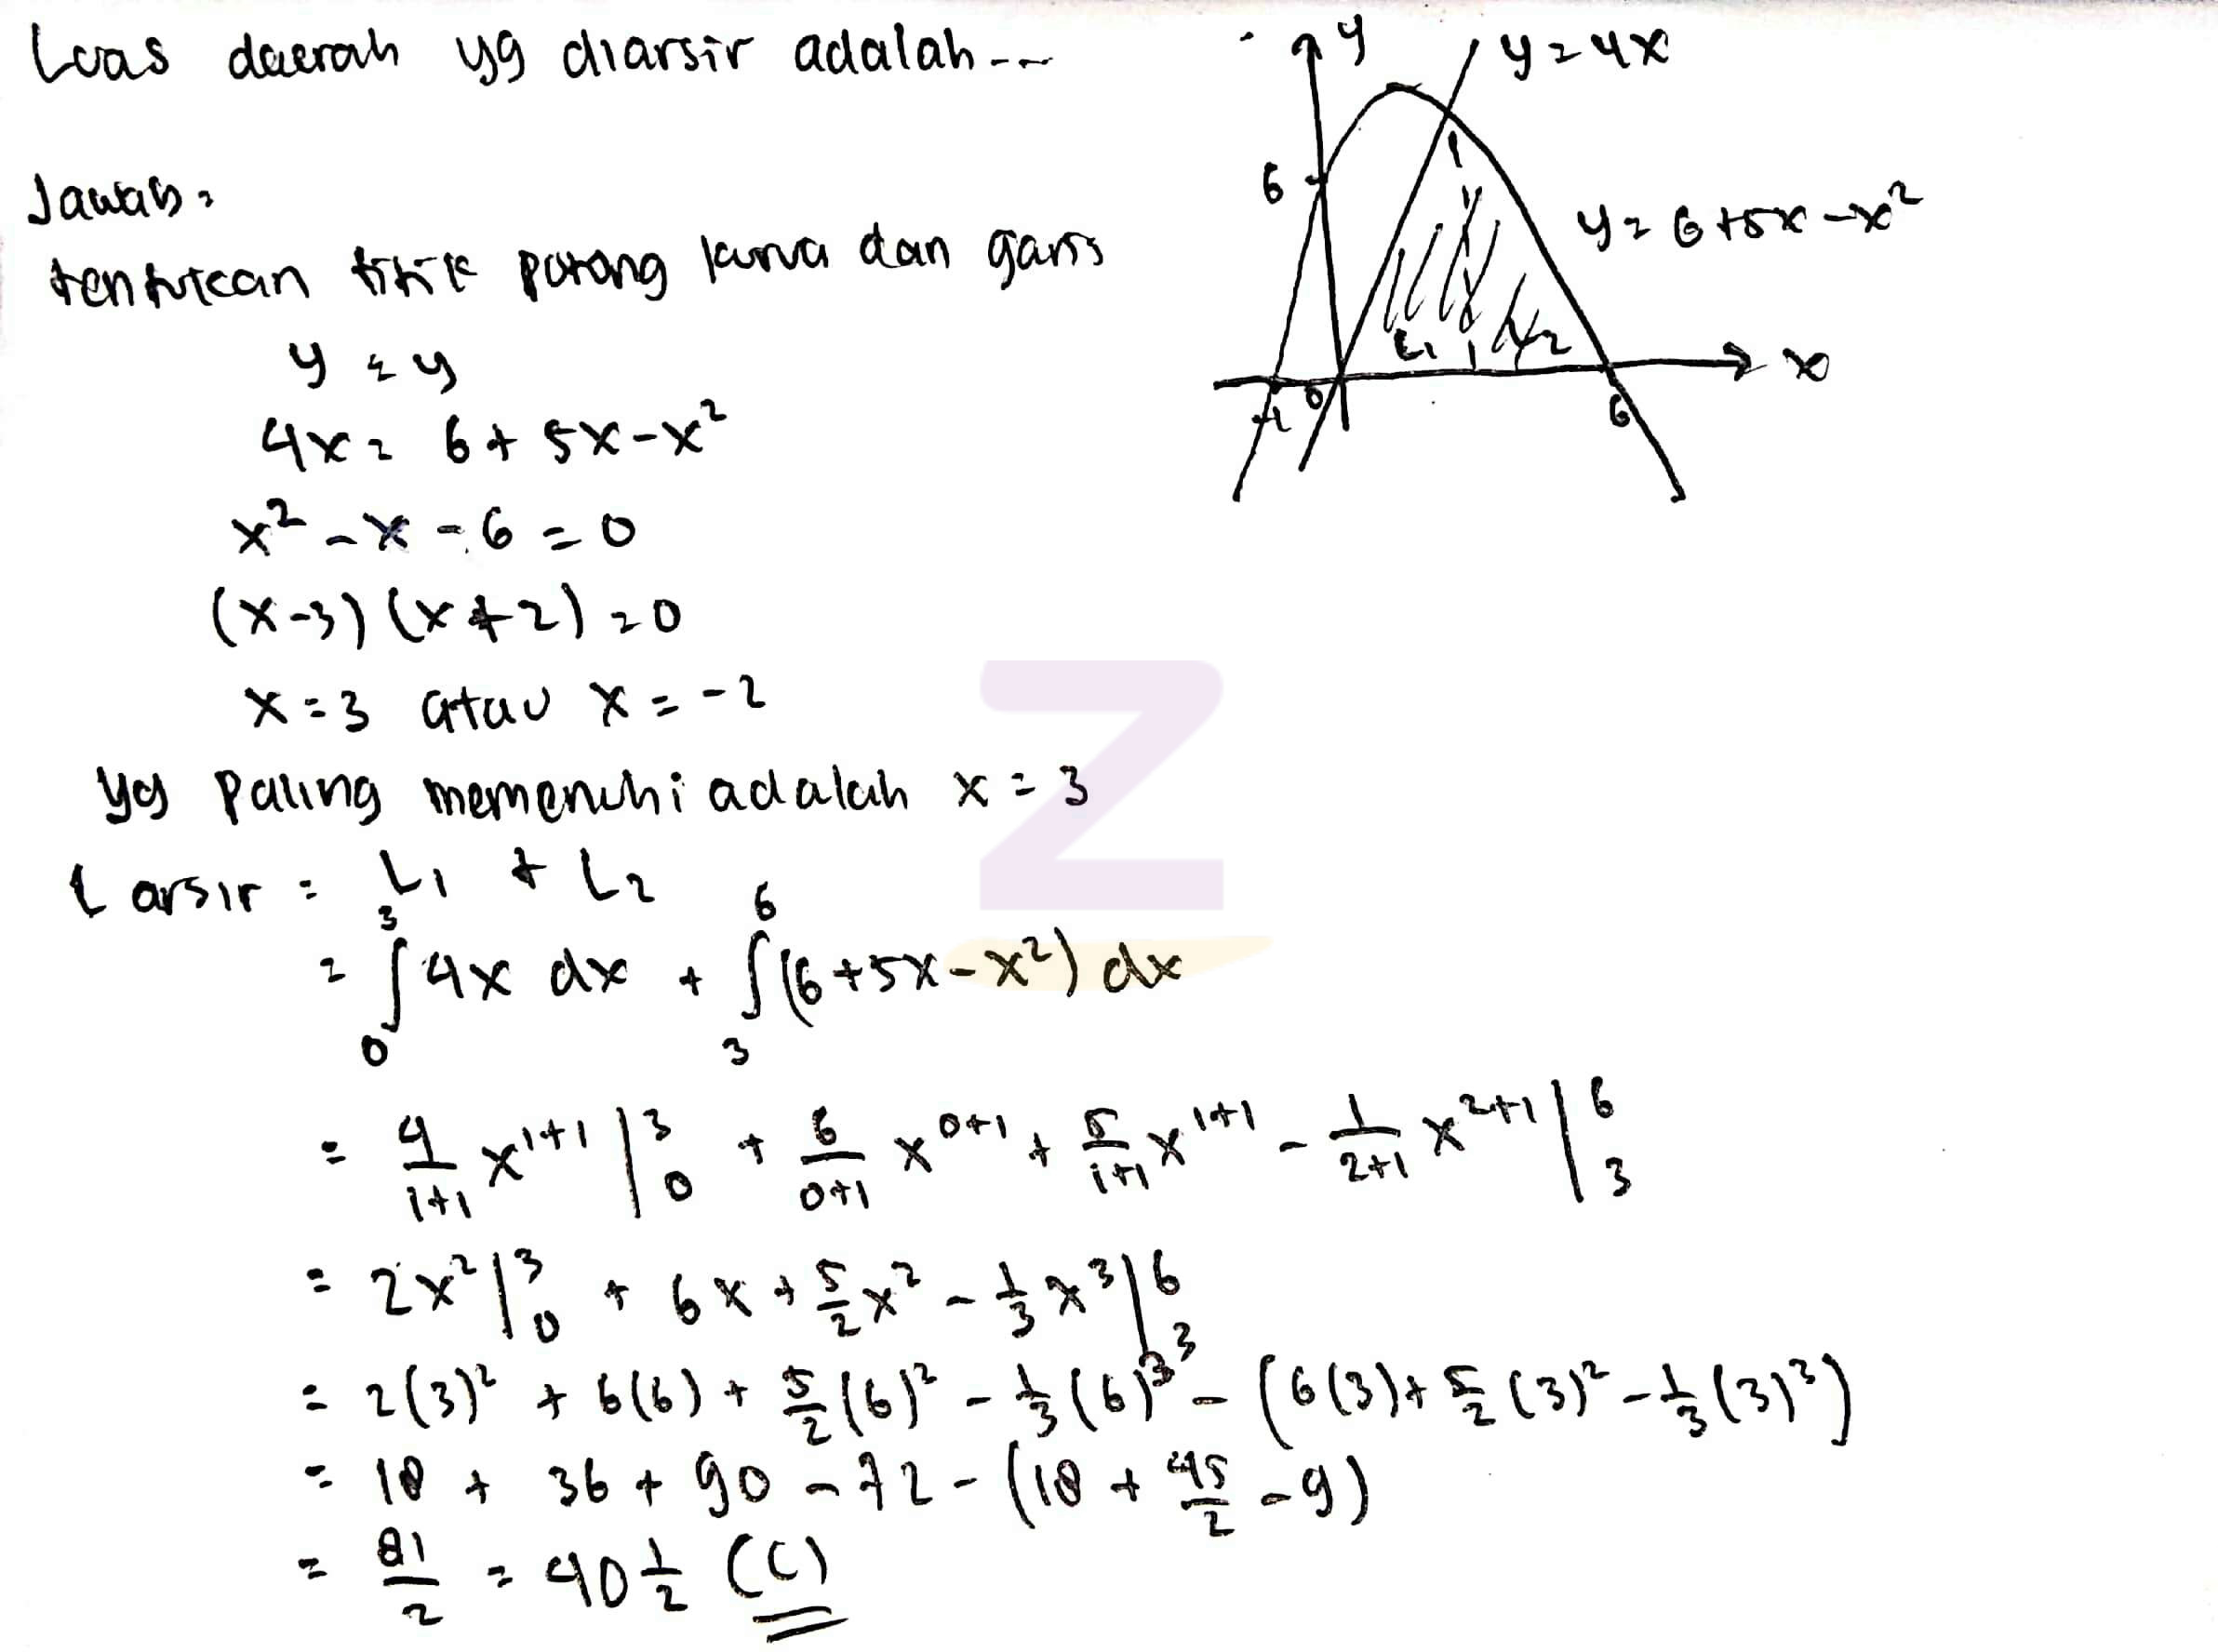 Luas daerah yg diarsir adalah...
y
y = 4x
6
y = 6 + 5x - x²
L₁ L₂
x
-1 0 6
Jawab =
tentukan titik potong kurva dan garis
y = y
4x = 6 + 5x - x²
x² - x - 6 = 0
(x-3) (x+2) = 0
x = 3 atau x = -2
yg paling memenuhi adalah x = 3
L arsir = L₁ + L₂
= ∫₀³ 4x dx + ∫₃⁶ (6+5x-x²) dx
= 4/(1+1) x¹⁺¹ |₀³ + 6/(0+1) x⁰⁺¹ + 5/(1+1) x¹⁺¹ - 1/(2+1) x²⁺¹ |₃⁶
= 2x² |₀³ + 6x + 5/2 x² - 1/3 x³ |₃⁶
= 2(3)² + 6(6) + 5/2 (6)² - 1/3 (6)³ - (6(3) + 5/2 (3)² - 1/3 (3)³)
= 18 + 36 + 90 - 72 - (18 + 45/2 - 9)
= 81/2 = 40 1/2 (C)